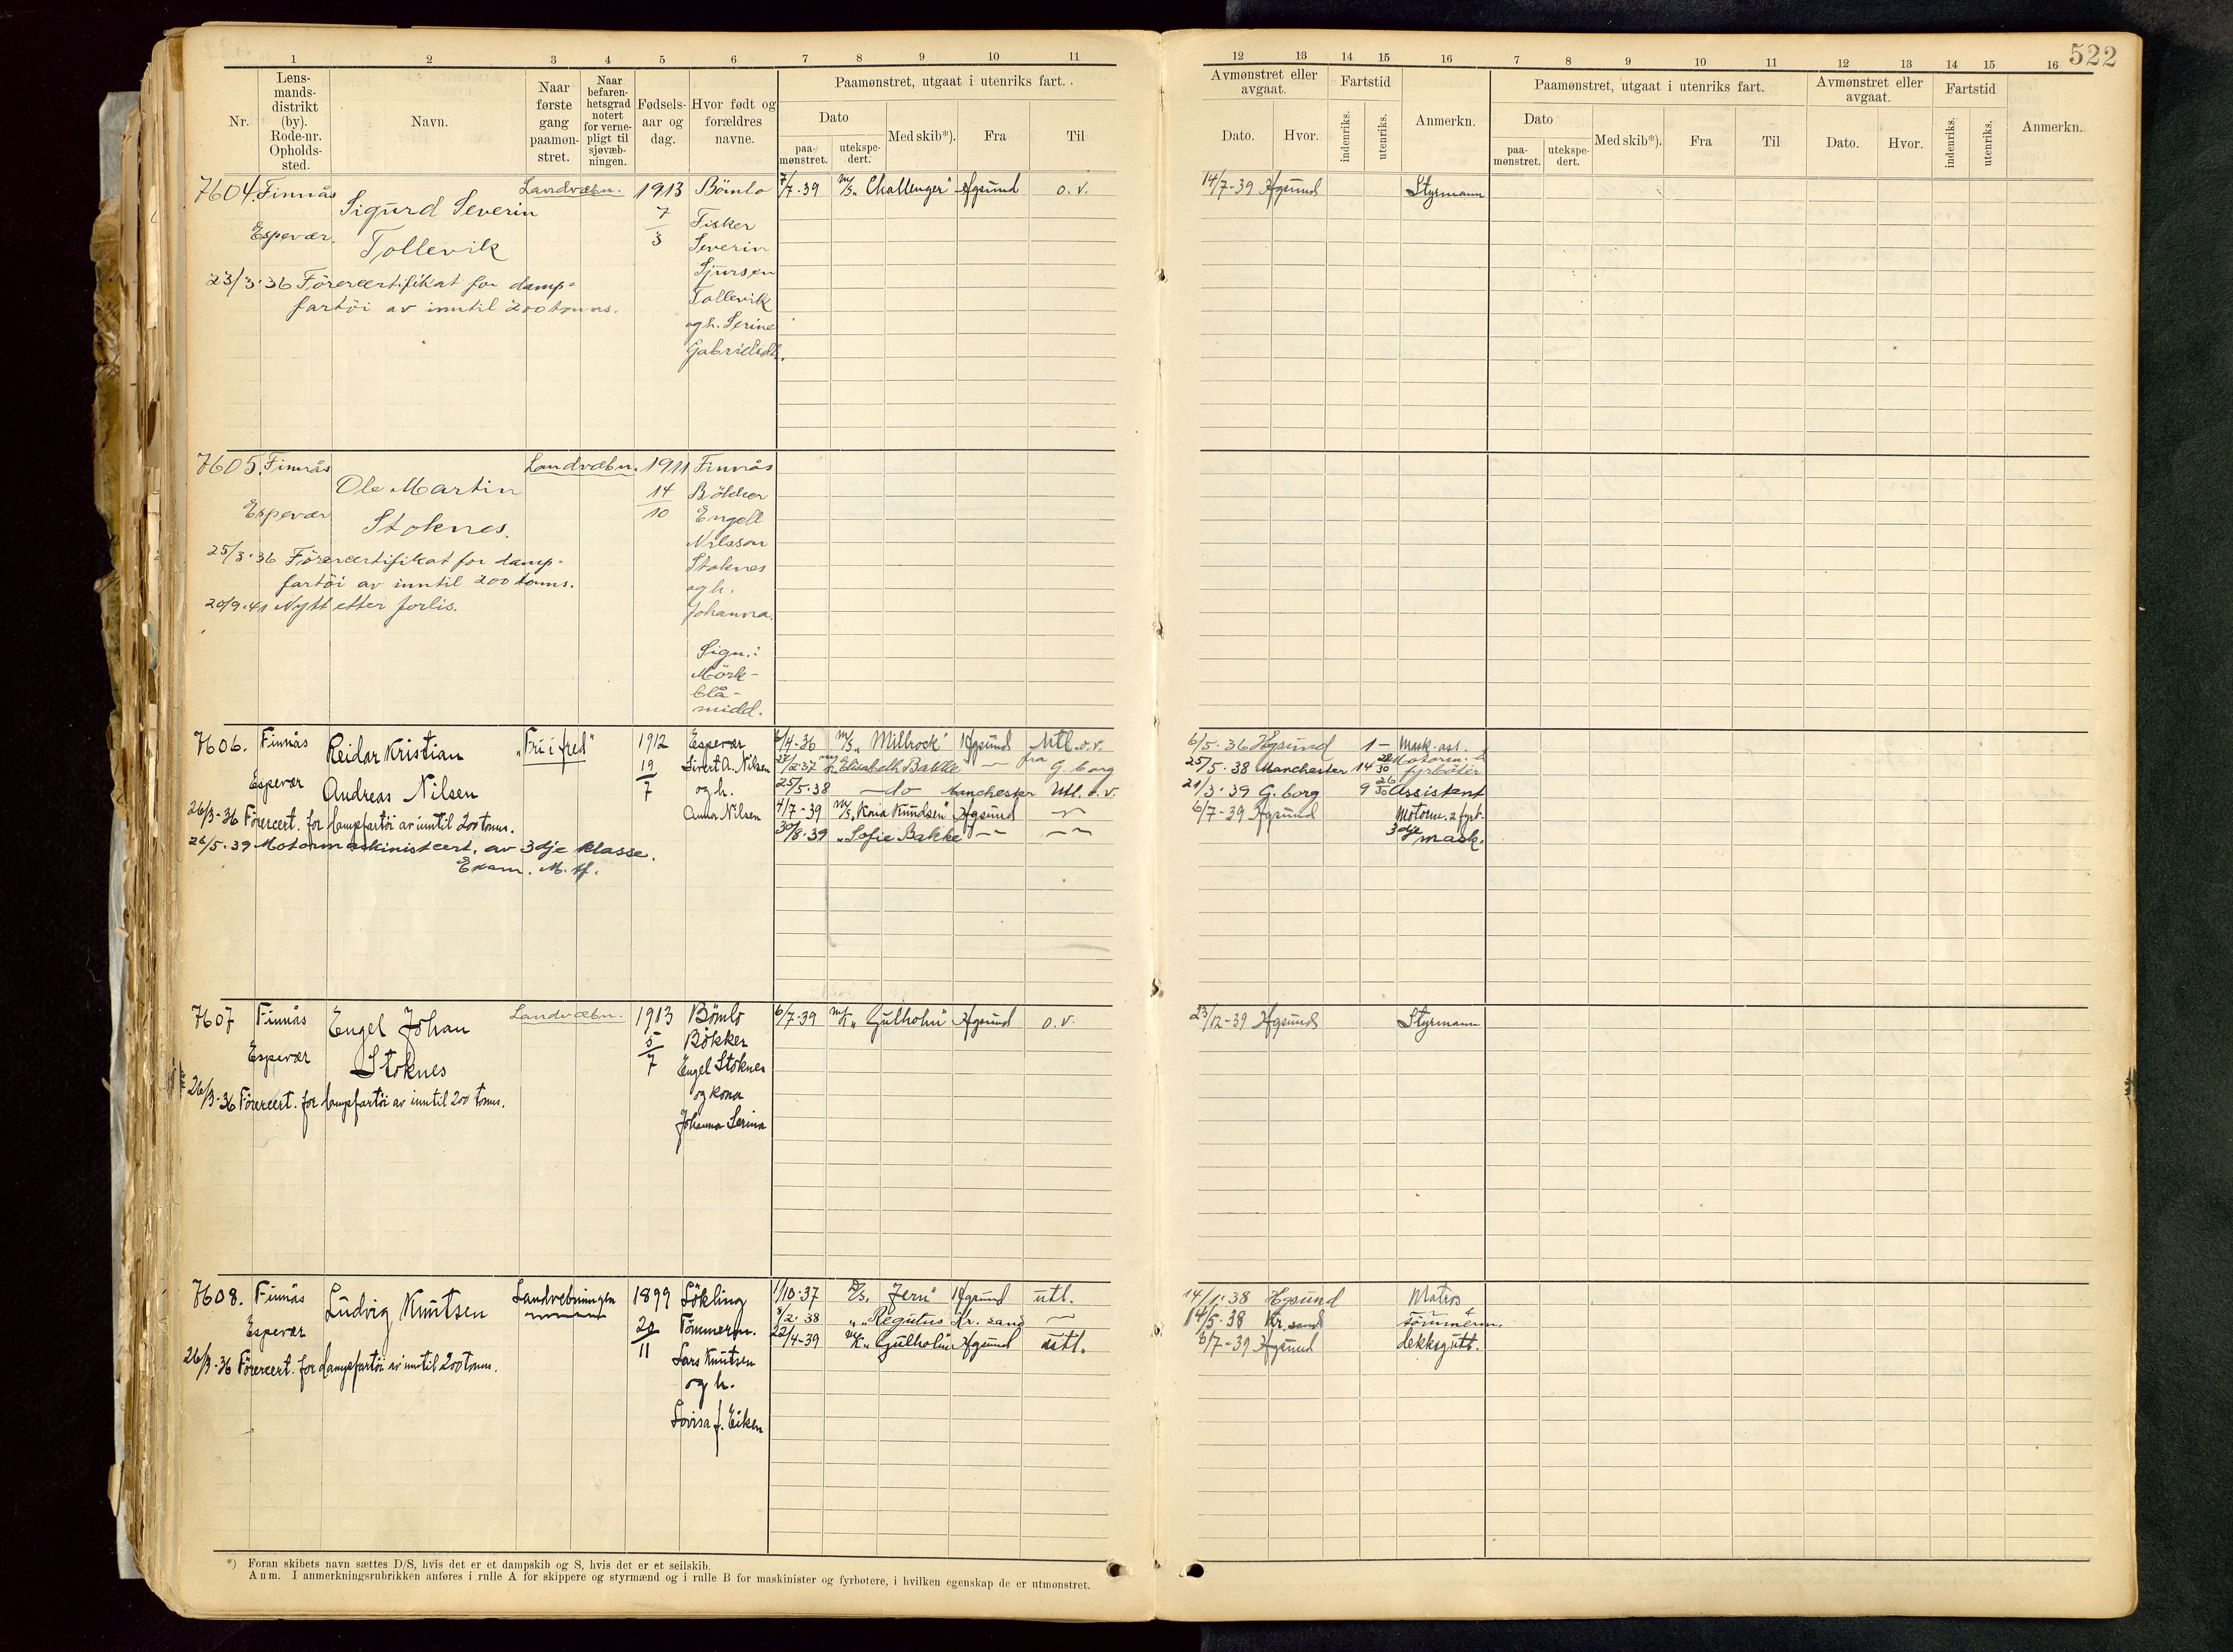 522
1 2 3 4 5 6 7 8 9 10 11
12 13 14 15 16 7 8 9 10 11 12 13 14 15 16
Nr.
Lens-
mands-
distrikt
(by).
Rode-nr.
Opholds-
sted.
Navn.
Naar
første
gang
paamøn-
stret.
Naar
befaren-
hetsgrad
notert
for verne-
pligt til
sjøvæb-
ningen.
Fødsels-
aar og
dag.
Hvor født og
forældres
navne.
Paamønstret, utgaat i utenriks fart.
Dato
paa-
mønstret.
utekspe-
dert.
Med skib*).
Fra
Til
Avmønstret eller
avgaat.
Dato.
Hvor.
Fartstid
indenriks.
utenriks.
Anmerkn.
Paamønstret, utgaat i utenriks fart.
Dato
paa-
mønstret.
utekspe-
dert.
Med skib*).
Fra
Til
Avmønstret eller
avgaat.
Dato.
Hvor.
Fartstid
indenriks.
utenriks.
Anmerkn.
7604. Finnås Landvæbn. 1913 Bömlo 7/7-39 M/S „Challenger" Hgsund o.v. 14/7-39 Hgsund Styrmann
Sigurd Severin 7/3 Fisker
Espevær. Tollevik Severin
Sjursen
23/3·36 Förercertifikat for damp-
Tollevik
fartöi av inntil 200 tonns.
og h. Serine
Gabrielsdt.
7605. Finnås Landvæbn. 1911 Finnås
Ole Martin 14/10 Bökker
Espevær Stoknes. Engell
Nilsson
25/3·36 Förercertifikat for damp-
Stoknes
fartöi av inntil 200 tonns.
og h.
20/9·41 Nytt etter forlis.
Johanna.
Sign.:
Mörk-
blå-
midd.
7606. Finnås Reidar Kristian „Fri i fred" 1912 Espevær 6/4-36 M/S „Millrock" Hgsund Utl. o.v. 6/5·36 Hgsund 1 - Mask.ass.
19/7 Sivert A. Nilsen /2·37 Elisabeth Bakke — fra G. borg 25/5·38 Manchester 14 28/30 Motorm.
fyrböter
Espevær Andreas Nilsen og h. 25/5·38 —do— Manchester Utl. o.v. 21/3·39 G. borg 9 26/30 Assistent
26/3-36 Förercert. for dampfartöi av inntil 200 tonns. Anna Nilsen 4/7-39 M/S „Kaia Knudsen" Hgsund — 6/7-39 Hgsund Motorm. 2 fyrb.
30/8·39 „Sofie Bakke — — 3dje mask.
26/5·39 Motormaskinistcert. av 3dje klasse.
Exam. M. Hf.
7607 Finnås Engel Johan Landvæbn. 1913 Bömlo 6/7-39 M/K „Gulholm" Hgsund o.v. 23/12-39 Hgsund Styrmann
5/7 Bökker
Espevær Stoknes Engel Stoknes
26/3-36 Förercert. for dampfartöi av inntil 200 tonns. og kona
Johanna Serina
7608. Finnås Ludvig Knutsen Landvebningen 1899 Sökling 1/10·37 D/S. „Jern" Hgsund utl. 14/1·38 Hgsund Matros
20/11 Tömmerm. 8/2·38 „ „Regulus Kr. sand — 14/5·38 Kr. sand tömmerm.
Espevær Lars Knutsen 22/4-39 M/K „Gulholm" Hgsund utl. 6/7-39 Hgsund dekksgutt.
26/3-36 Förercert. for dampfartöi av inntil 200 tonns.
og h.
Lovisa f. Eiken
*) Foran skibets navn sættes D/S, hvis det er et dampskib og S, hvis det er et seilskib.
Anm. I anmerkningsrubrikken anføres i rulle A for skippere og styrmænd og i rulle B for maskinister og fyrbøtere, i hvilken egenskap de er utmønstret.